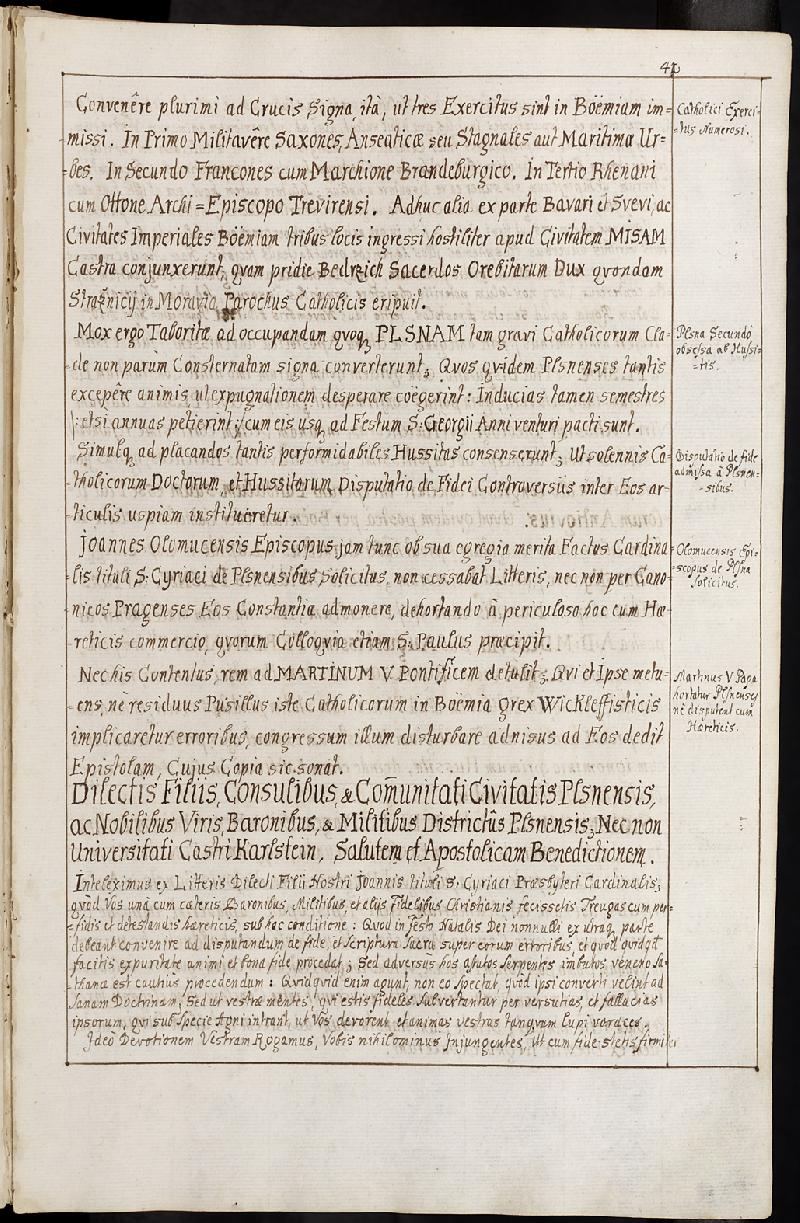 42
Convenêre plurimi ad Crucis Signa, ità, ut tres Exercitus sint in Böëmiam im=
missi. In Primo Militavêre Saxones, Anseaticæ seu Stagnales aut Maritimæ Ur=
=bes. In Secundo Francones cum Marchione Brandeburgico. In Tertio Rhenani
cum Ottone Archi=Episcopo Trevirensi. Adhuc alia ex parte Bavari et Svevi, ac
Civitates Imperiales Böëmiam tribus locis ingressi hostiliter apud Civitatem MISAM
Castra conjunxerunt, qvam pridie Bedrzich Sacerdos Orebitarum Dux qvondam
Strażnicij in Moravia Parochus Catholicis eripuit.
Catholici Exerci=
=tus Numerosi.
Mox ergo Taboritæ ad occupandam qvoq, PLSNAM tam gravi Catholicorum Cla=
=de non parùm Consternatam signa converterunt; Qvos qvidem Plsnenses tantis
excepêre animis, ut expugnationem desperare coëgerint: Inducias tamen semestres
/: etsi annuas petierint :/ cum eis usq, ad Festum S. Georgii Anni venturi pacti sunt.
Plsna Secundò
obsessa ab Hussi=
=tis.
Simulq, ad placandos tantis performidabiles Hussitas consenserunt; Ut solennis Ca=
=tholicorum Doctorum, et Hussitarum Disputatio de Fidei Controversiis inter Eos ar=
=ticulis uspiam institueretur.
Disputatio de fide
admissa à Plsnen=
=sibus.
Joannes Olomucensis Episcopus, jam tunc ob sua egregia merita Factus Cardina=
=lis tituli S. Cyriaci de Plsnensibus solicitus, non cessabat Litteris, nec non per Cano=
nicos Pragenses Eos Constantiæ admonere, dehortando à periculoso hoc cum Hæ=
reticis commercio, qvorum Colloqvia etiam S. Paulus præcipit.
Olomucensis Epi=
=scopus de Plsna
solicitus.
Nec his Contentus, rem ad MARTINUM V Pontificem detulit; Qvi et Ipse metu=
=ens, nè residuus Pusillus iste Catholicorum in Böëmia grex Wickleffisticis
implicaretur erroribus, congressum illum disturbare adnisus ad Eos dedit
Epistolam, Cujus Copia sic sonat.
Martinus V Papa
hortatur Plsnenses
nè disputent cum
Hæreticis.
Dilectis Filiis, Consulibus, & Com̃unitati Civitatis Plsnensis,
ac Nobilibus Viris, Baronibus, & Militibus Districtûs Plsnensis; Nec non
Universitati Castri Karlstein, Salutem et Apostolicam Benedictionem.
Inteleximus ex Litteris Dilecti Filii Nostri Joannis tituli S. Cyriaci Præsbyteri Cardinalis;
qvòd Vos unà cum cæteris Baronibus, Militibus, et alijs Fidelibus Christianis fecissetis Treugas cum per=
=fidis et detestandis hæreticis, sub hac conditione: Quod in festo Natalis Dei nonnulli ex utraq, parte
debeant convenire ad disputandum de fide, et Scriptura Sacra super eorum erroribus, et qvod qvidqvid
facitis ex puritate animi et bona fide procedat; Sed adversùs hos astutos Serpentes imbutos veneno Sa=
thanæ est cautiùs procedendum: Quidqvid enim agunt, non eò spectat, qvòd ipsi converti velint ad
sanam Doctrinam, Sed ut vestræ mentes, qvi estis fideles Subvertantur per versutias, et fallacias
ipsorum, qvi sub Specie Agni intrant, ut Vos devorent, et animas vestras tanqvam Lupi voraces.
Ideò Devotionem Vestram Rogamus, Vobis nihilominus Injungentes, Ut cum fide stetis firmiter